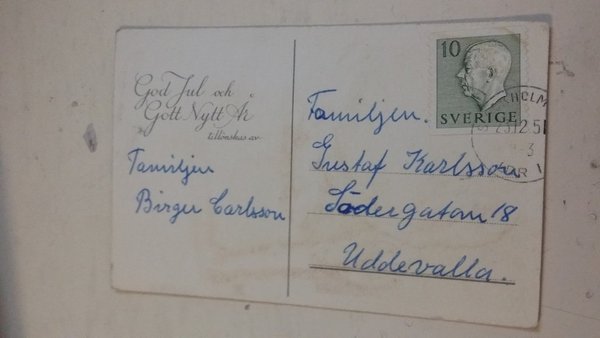 God Jul och
Gott Nytt År
tillönskas av
Familjen
Birger Carlsson
10
SVERIGE
HOLM
23 12 51
3
Familjen.
Gustaf Karlsson
Södergatan 18
Uddevalla.